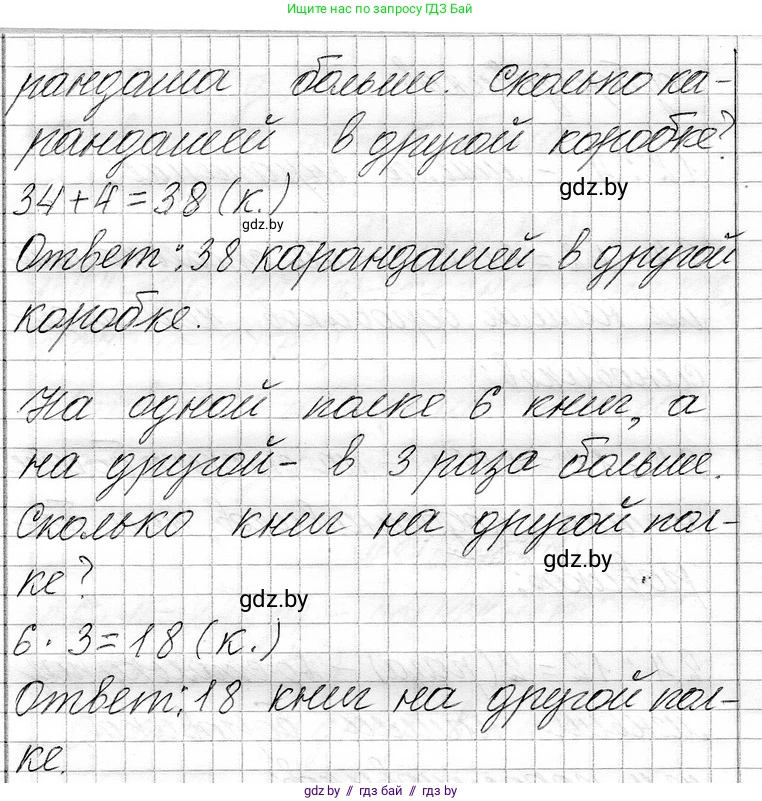 Ищите нас по запросу ГДЗ Бай
рандаша больше. Сколько ка-
рандашей в другой коробке?
gdz.by
34+4=38 (к.)
gdz.by
Ответ: 38 карандашей в другой
коробке.
На одной полке 6 книг, а
на другой- в 3 раза больше.
Сколько книг на другой пол-
gdz.by
ке?
gdz.by
6·3=18 (к.)
Ответ: 18 книг на другой пол-
ке.
gdz.by // гдз бай // gdz.by